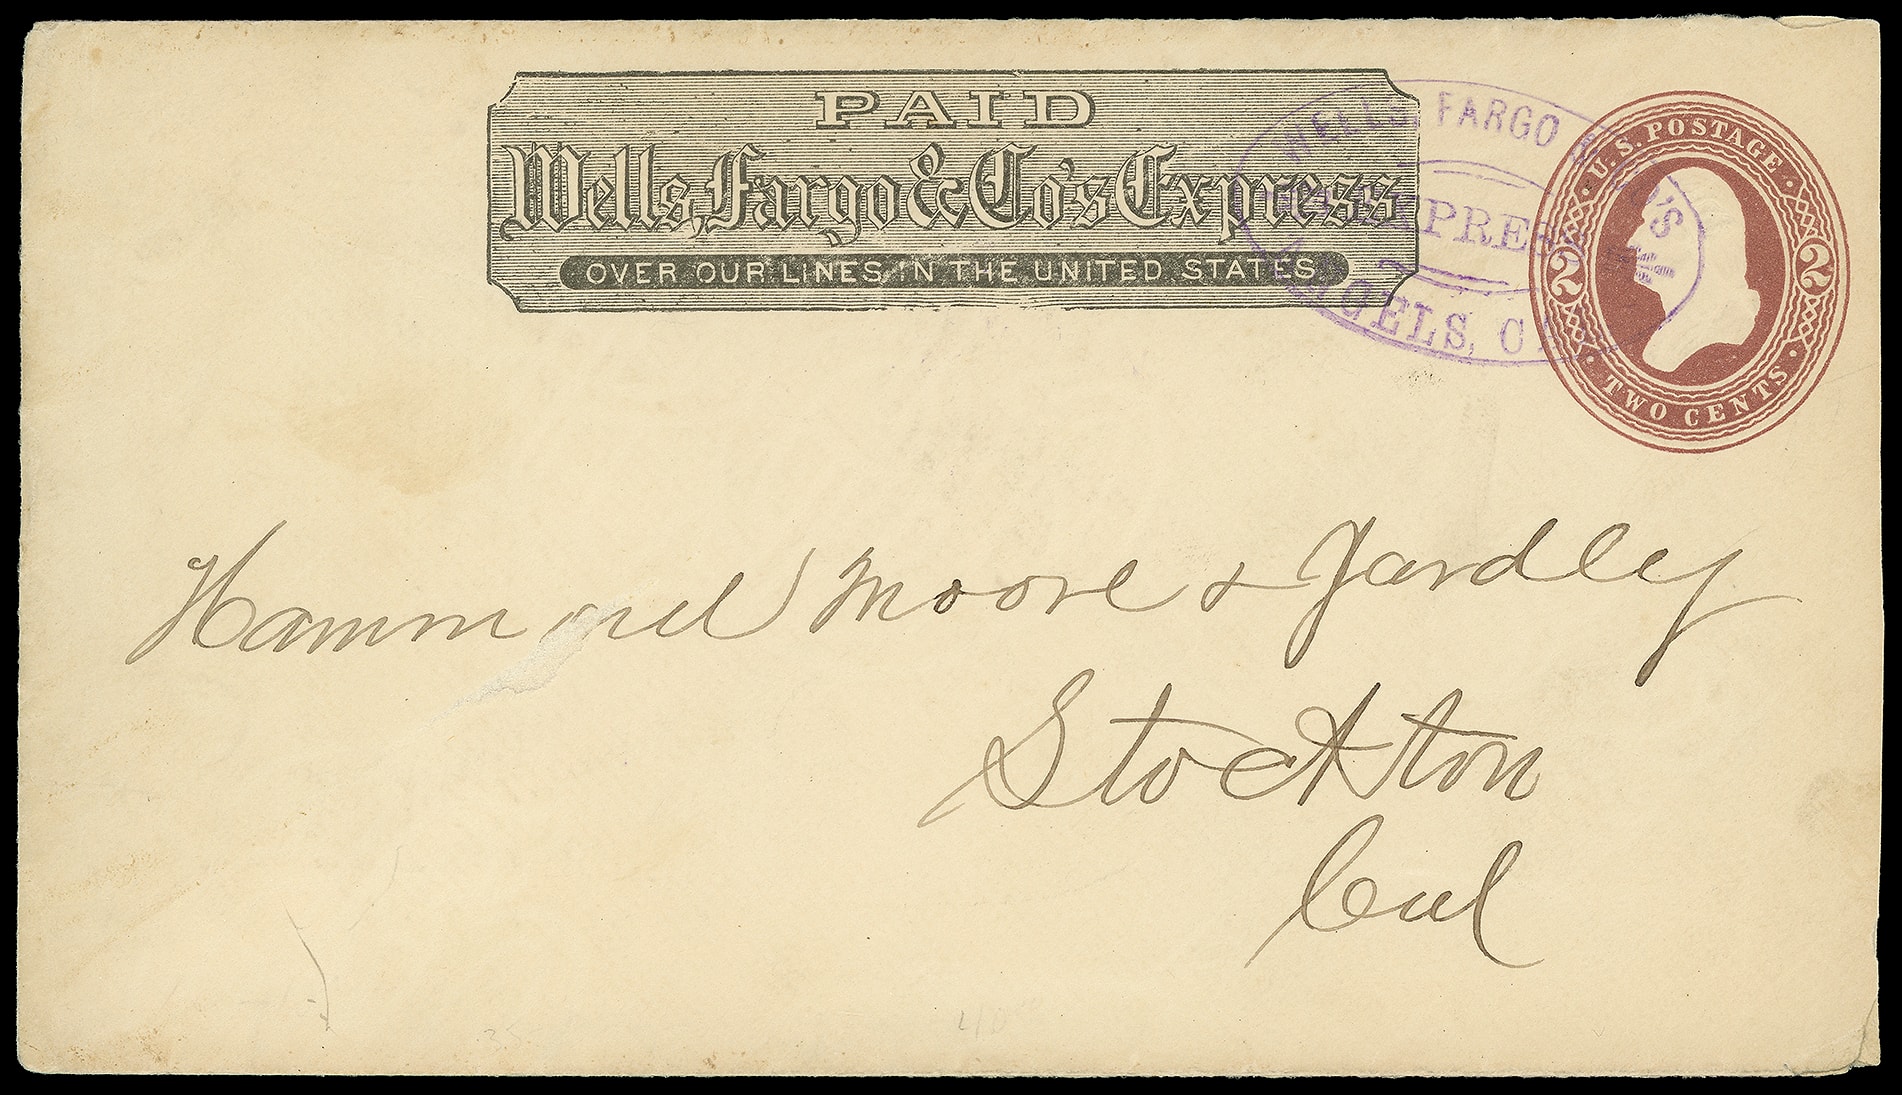 PAID
Wells, Fargo & Co's Express
OVER OUR LINES IN THE UNITED STATES
WELLS, FARGO & CO'S
EXPRESS
ANGELS, CAL
U.S. POSTAGE
2 2
TWO CENTS
Hammond Moore & Yardley
Stockton
Cal